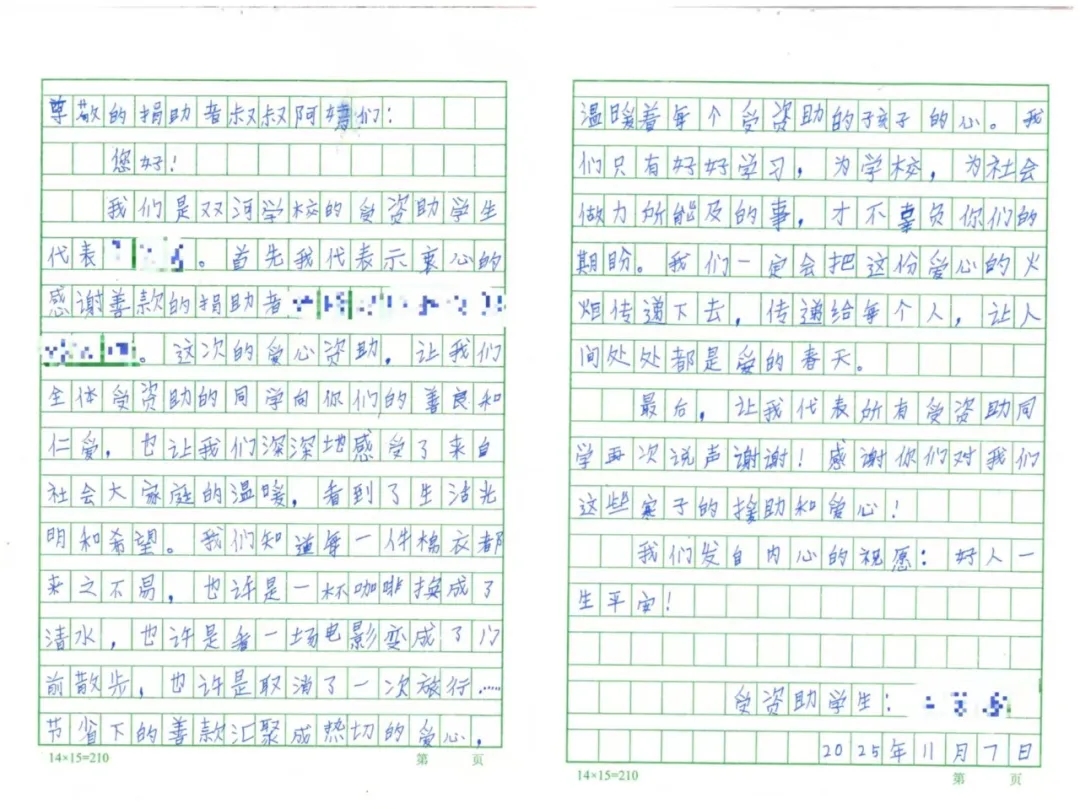 尊敬的捐助者叔叔阿姨们:
您好!
我们是双河学校的受资助学生
代表。首先我代表示衷心的
感谢善款的捐助者
。这次的爱心资助,让我们
全体受资助的同学向你们的善良和
仁爱,也让我们深深地感受了来自
社会大家庭的温暖,看到了生活光
明和希望。我们知道每一件棉衣都
来之不易,也许是一杯咖啡换成了
清水,也许是看一场电影变成了门
前散步,也许是取消了一次旅行……
节省下的善款汇聚成热切的爱心,
14×15=210
第 页
温暖着每个受资助的孩子的心。我
们只有好好学习,为学校,为社会
做力所能及的事,才不辜负你们的
期盼。我们一定会把这份爱心的火
焰传递下去,传递给每个人,让人
间处处都是爱的春天。
最后,让我代表所有受资助同
学再次说声谢谢!感谢你们对我们
这些孩子的援助和爱心!
我们发自内心的祝愿:好人一
生平安!
受资助学生:
2025年11月7日
14×15=210
第 页